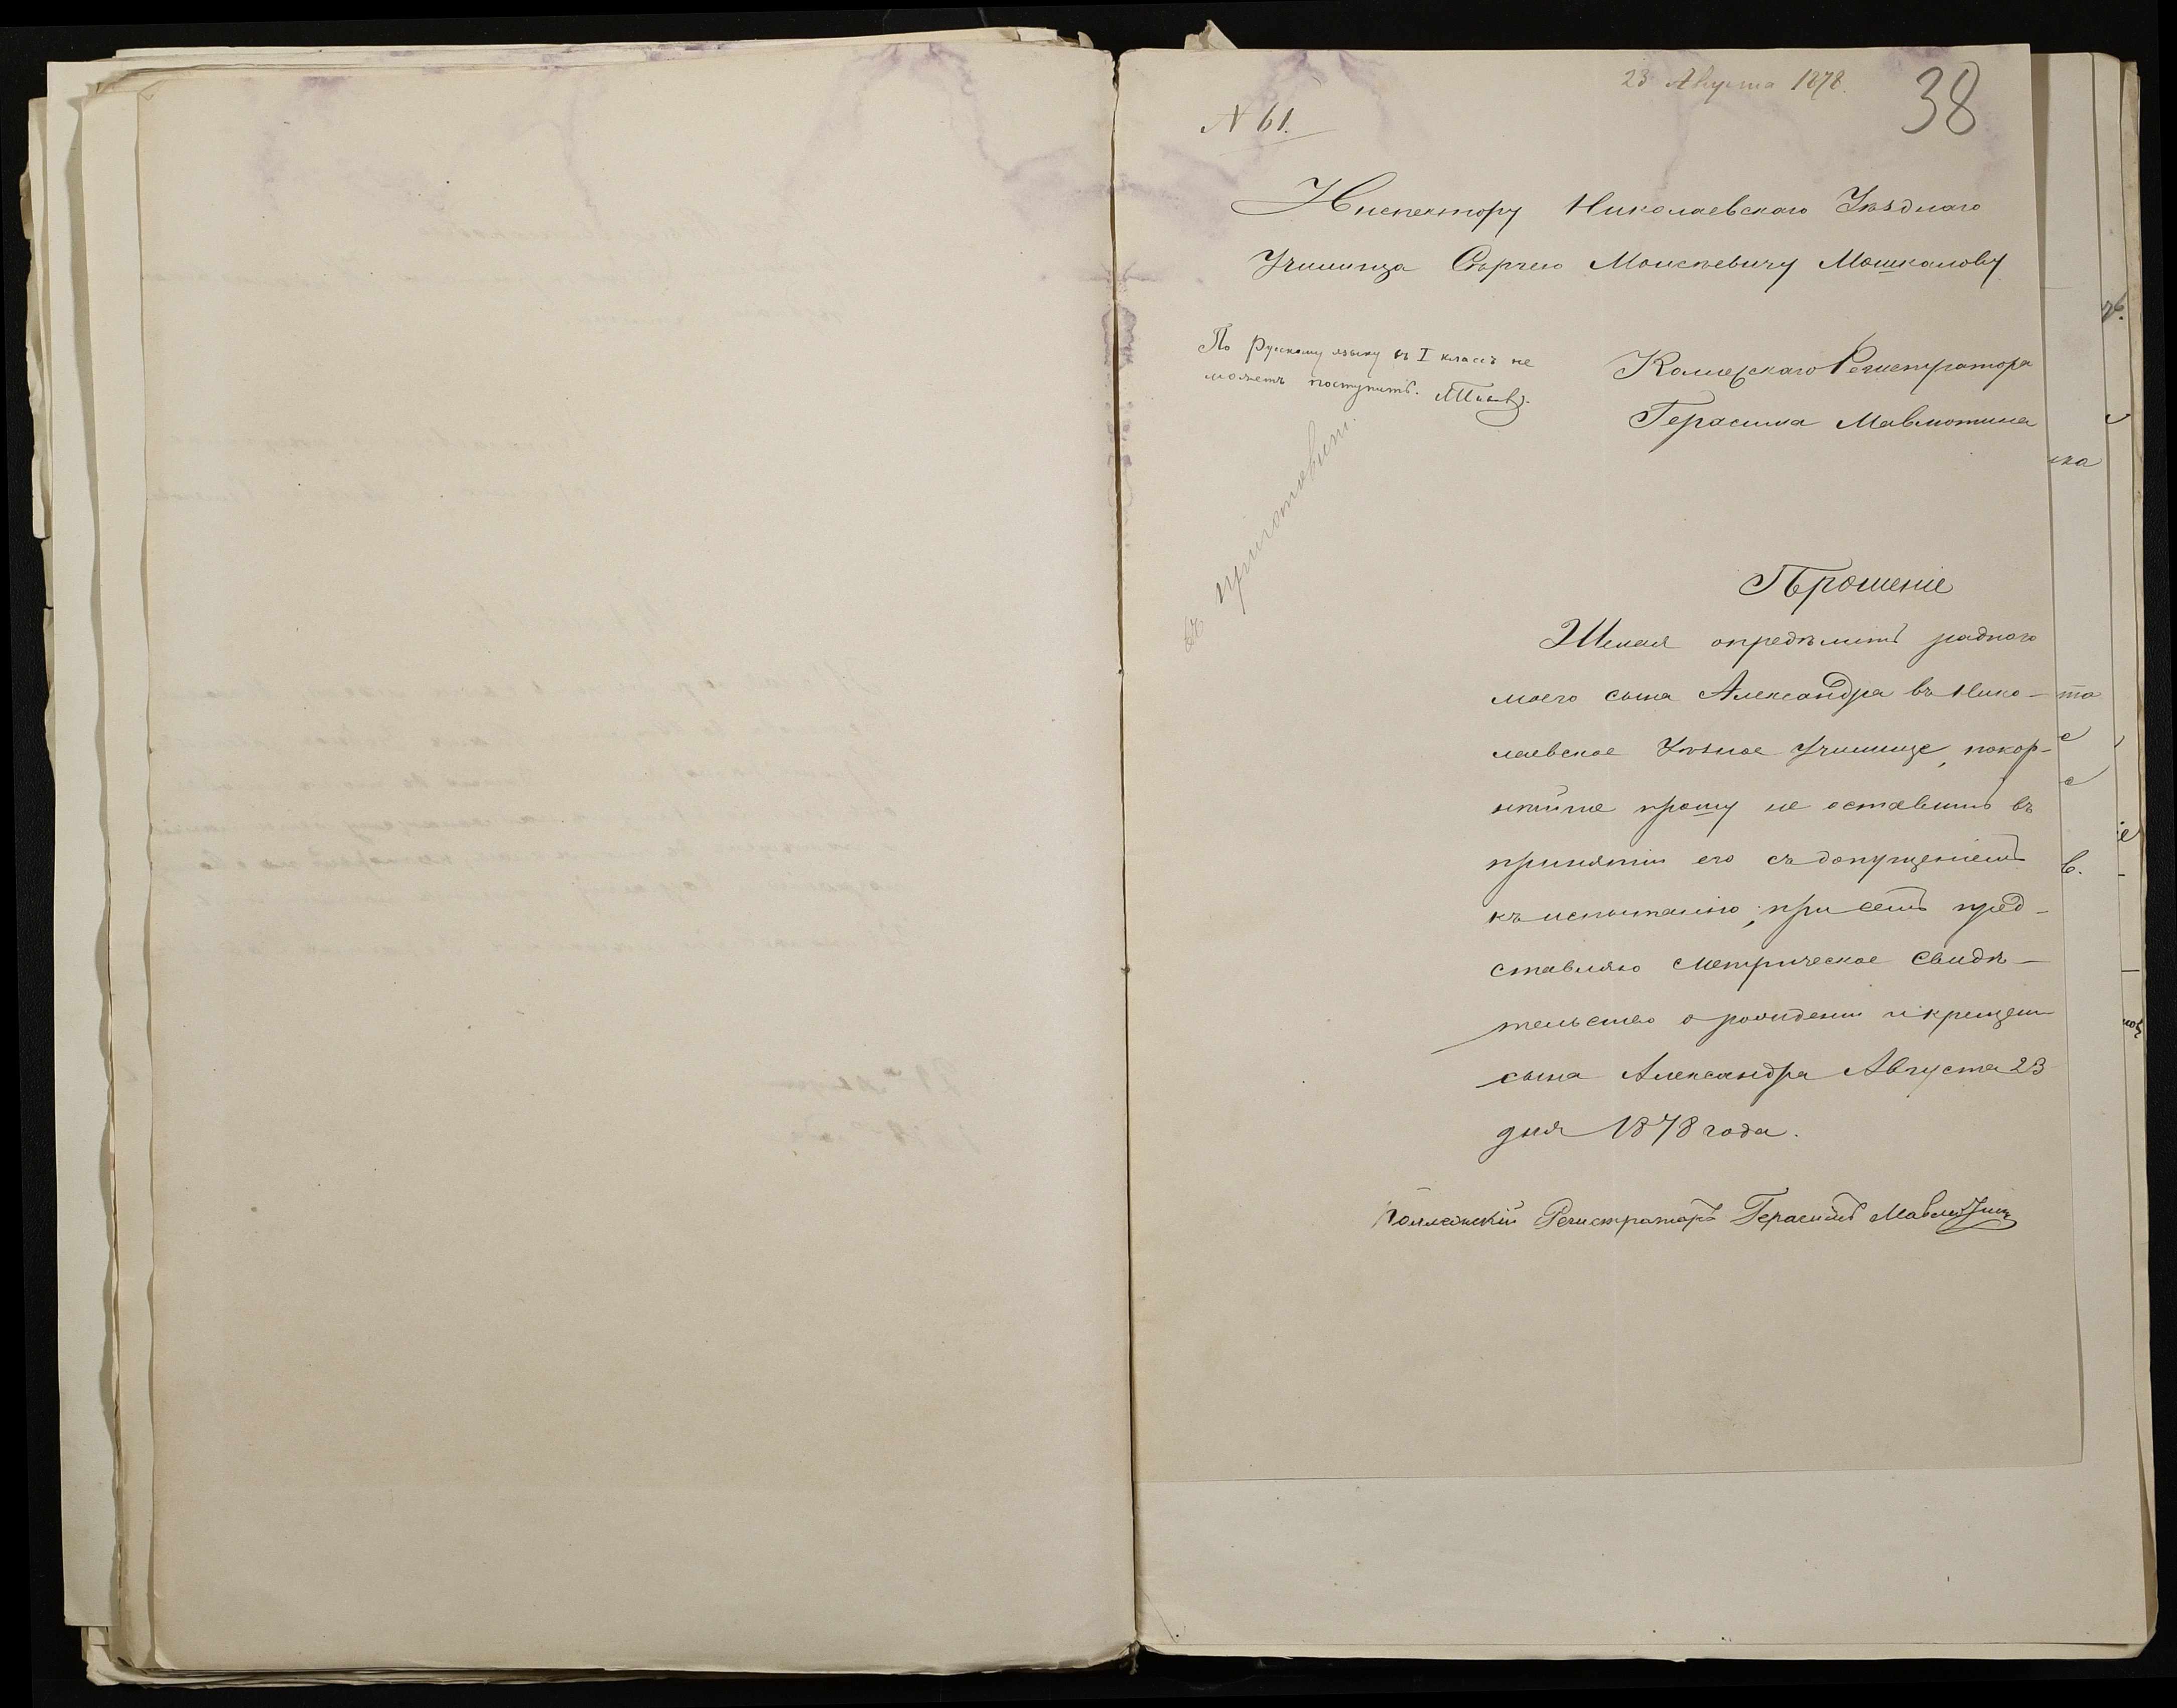 23 Августа 1878.
38
N 61.
Инспектору Николаевскаго Уѣзднаго
Училища Сѣргею Моисѣевичу Мошкалову
По русскому языку въ I классъ не
можетъ поступить.
въ приготовит.
Коллежскаго Регистратора
Герасима Мавлютина
Прошеніе
Желая опредѣлить родного
моего сына Александра въ Нико-
лаевское Уѣзное Училище, покор-
нѣйше прошу не оставить въ
принятіи его съ допущеніемъ
къ испытанію; при семъ пред-
ставляю Метрическое Свидѣ-
тельство о рождении и крещении
сына Александра Августа 23
дня 1878 года.
Коллежскій Регистраторъ Герасимъ Мавлютинъ